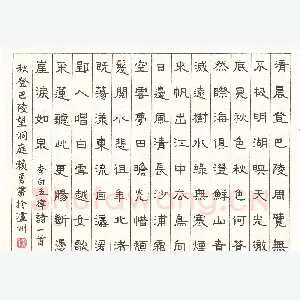 清晨登巴陵周覽無
不極明湖映天光徹
底見秋色秋色何蒼
然際海俱澄鮮山青
滅遠樹水綠無寒煙
來帆出江中去鳥向
日邊風清長沙浦山
空雲夢田瞻光惜頹
髮閱水悲徂年北渚
既蕩漾東流自潺湲
郢人唱白雪越女歌
采蓮聽此更腸斷憑
崖淚如泉 李白五律詩一首
秋登巴陵望洞庭 賴勇書於瀘州